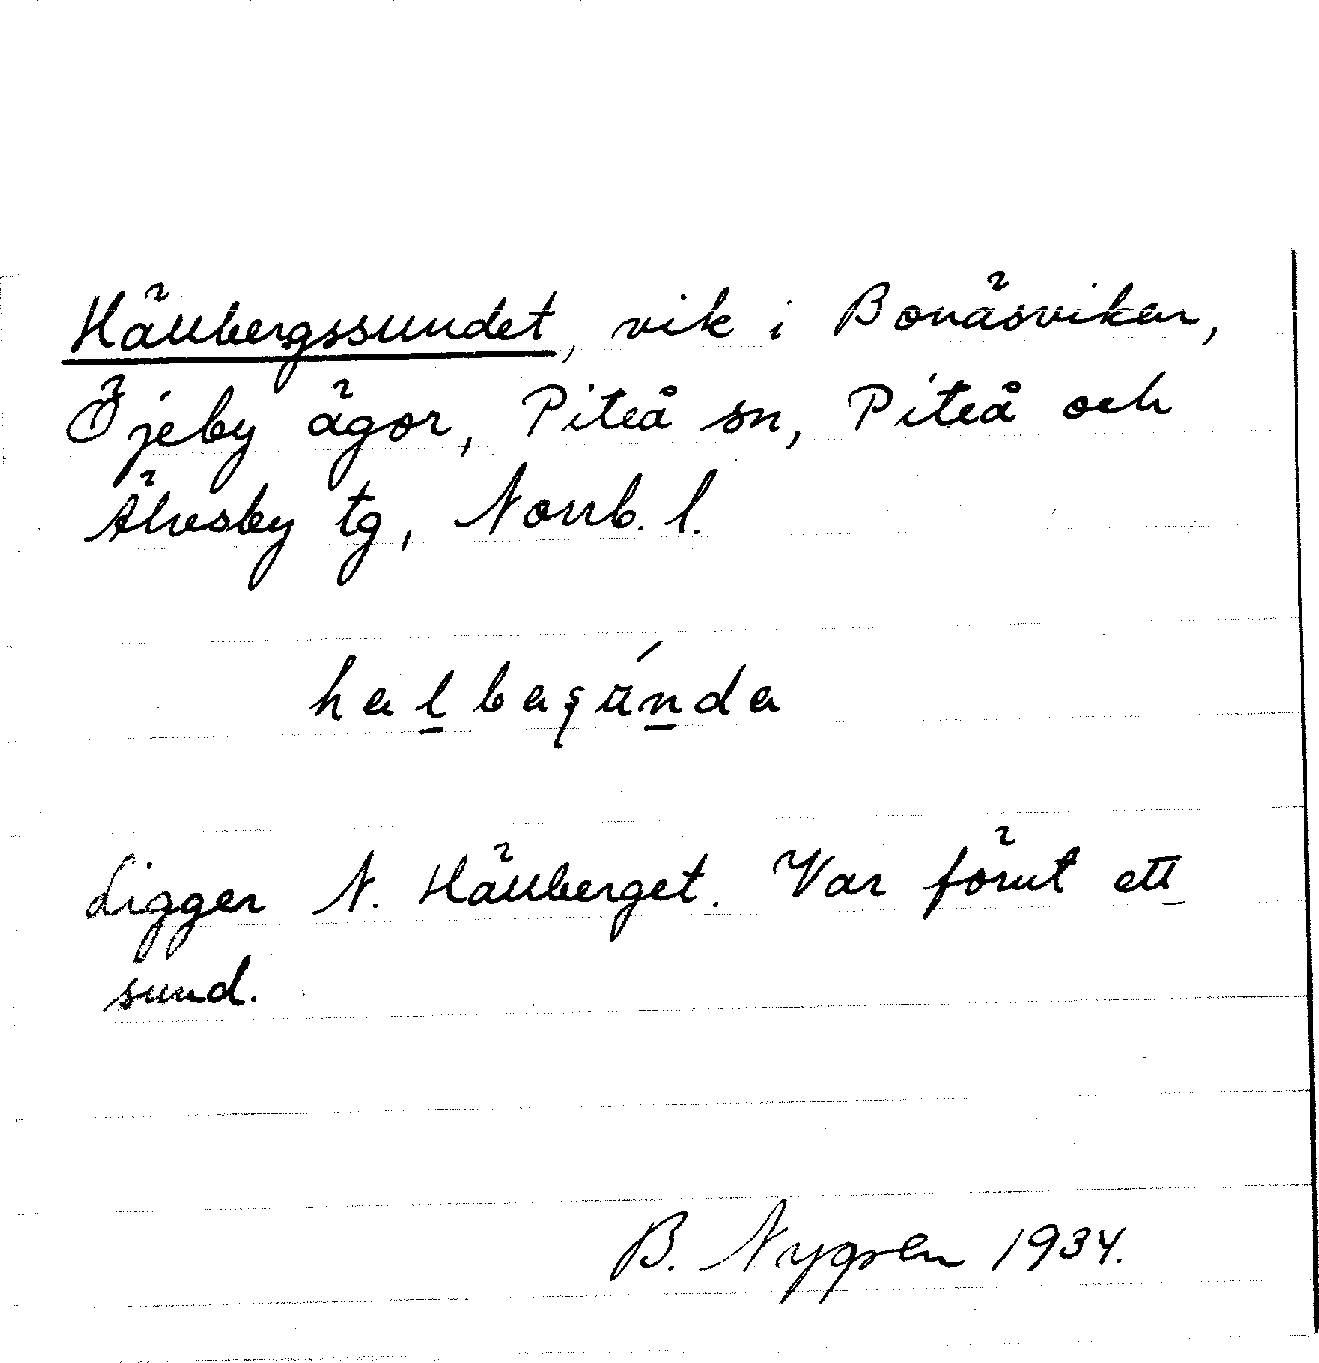 Hällbergssundet, vik i Bonäsviken,
Öjeby ägor, Piteå sn, Piteå och
Älvsby tg, Norrb. l.
Ligger N. Hällberget. Var förut ett
sund.
B. Nygren 1934.